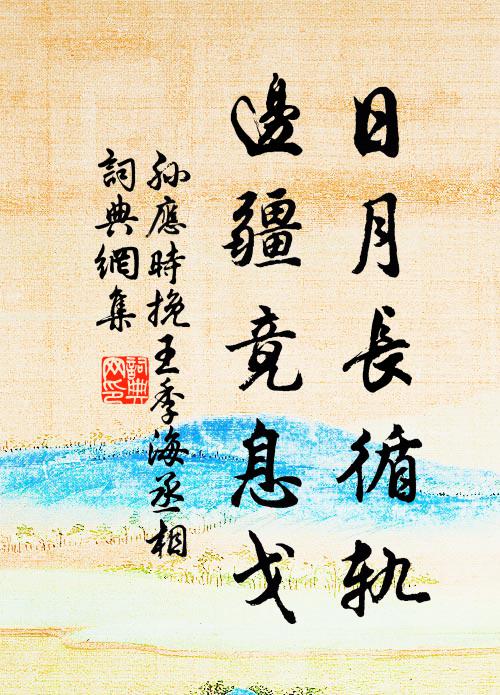 日月長循軌
邊疆竟息戈
孫應時挽王季海丞相
詞典網集
詞典網印